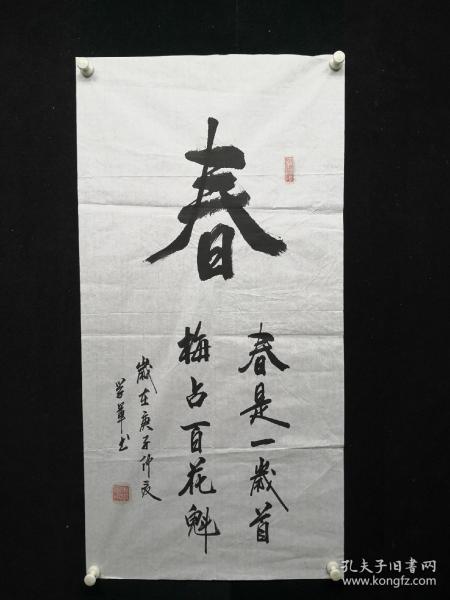 春
春是一歲首
梅占百花魁
歲在庚子仲夏
学華书
孔夫子旧书网
www.kongfz.com